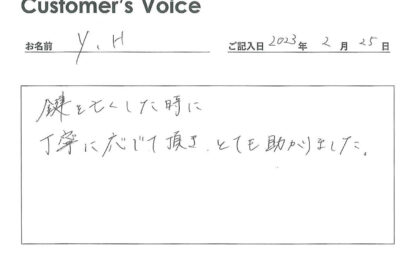 Customer's Voice
お名前 Y.H ご記入日 2023年 2月 25日
鍵を亡くした時に
丁寧に応じて頂き、とても助かりました。